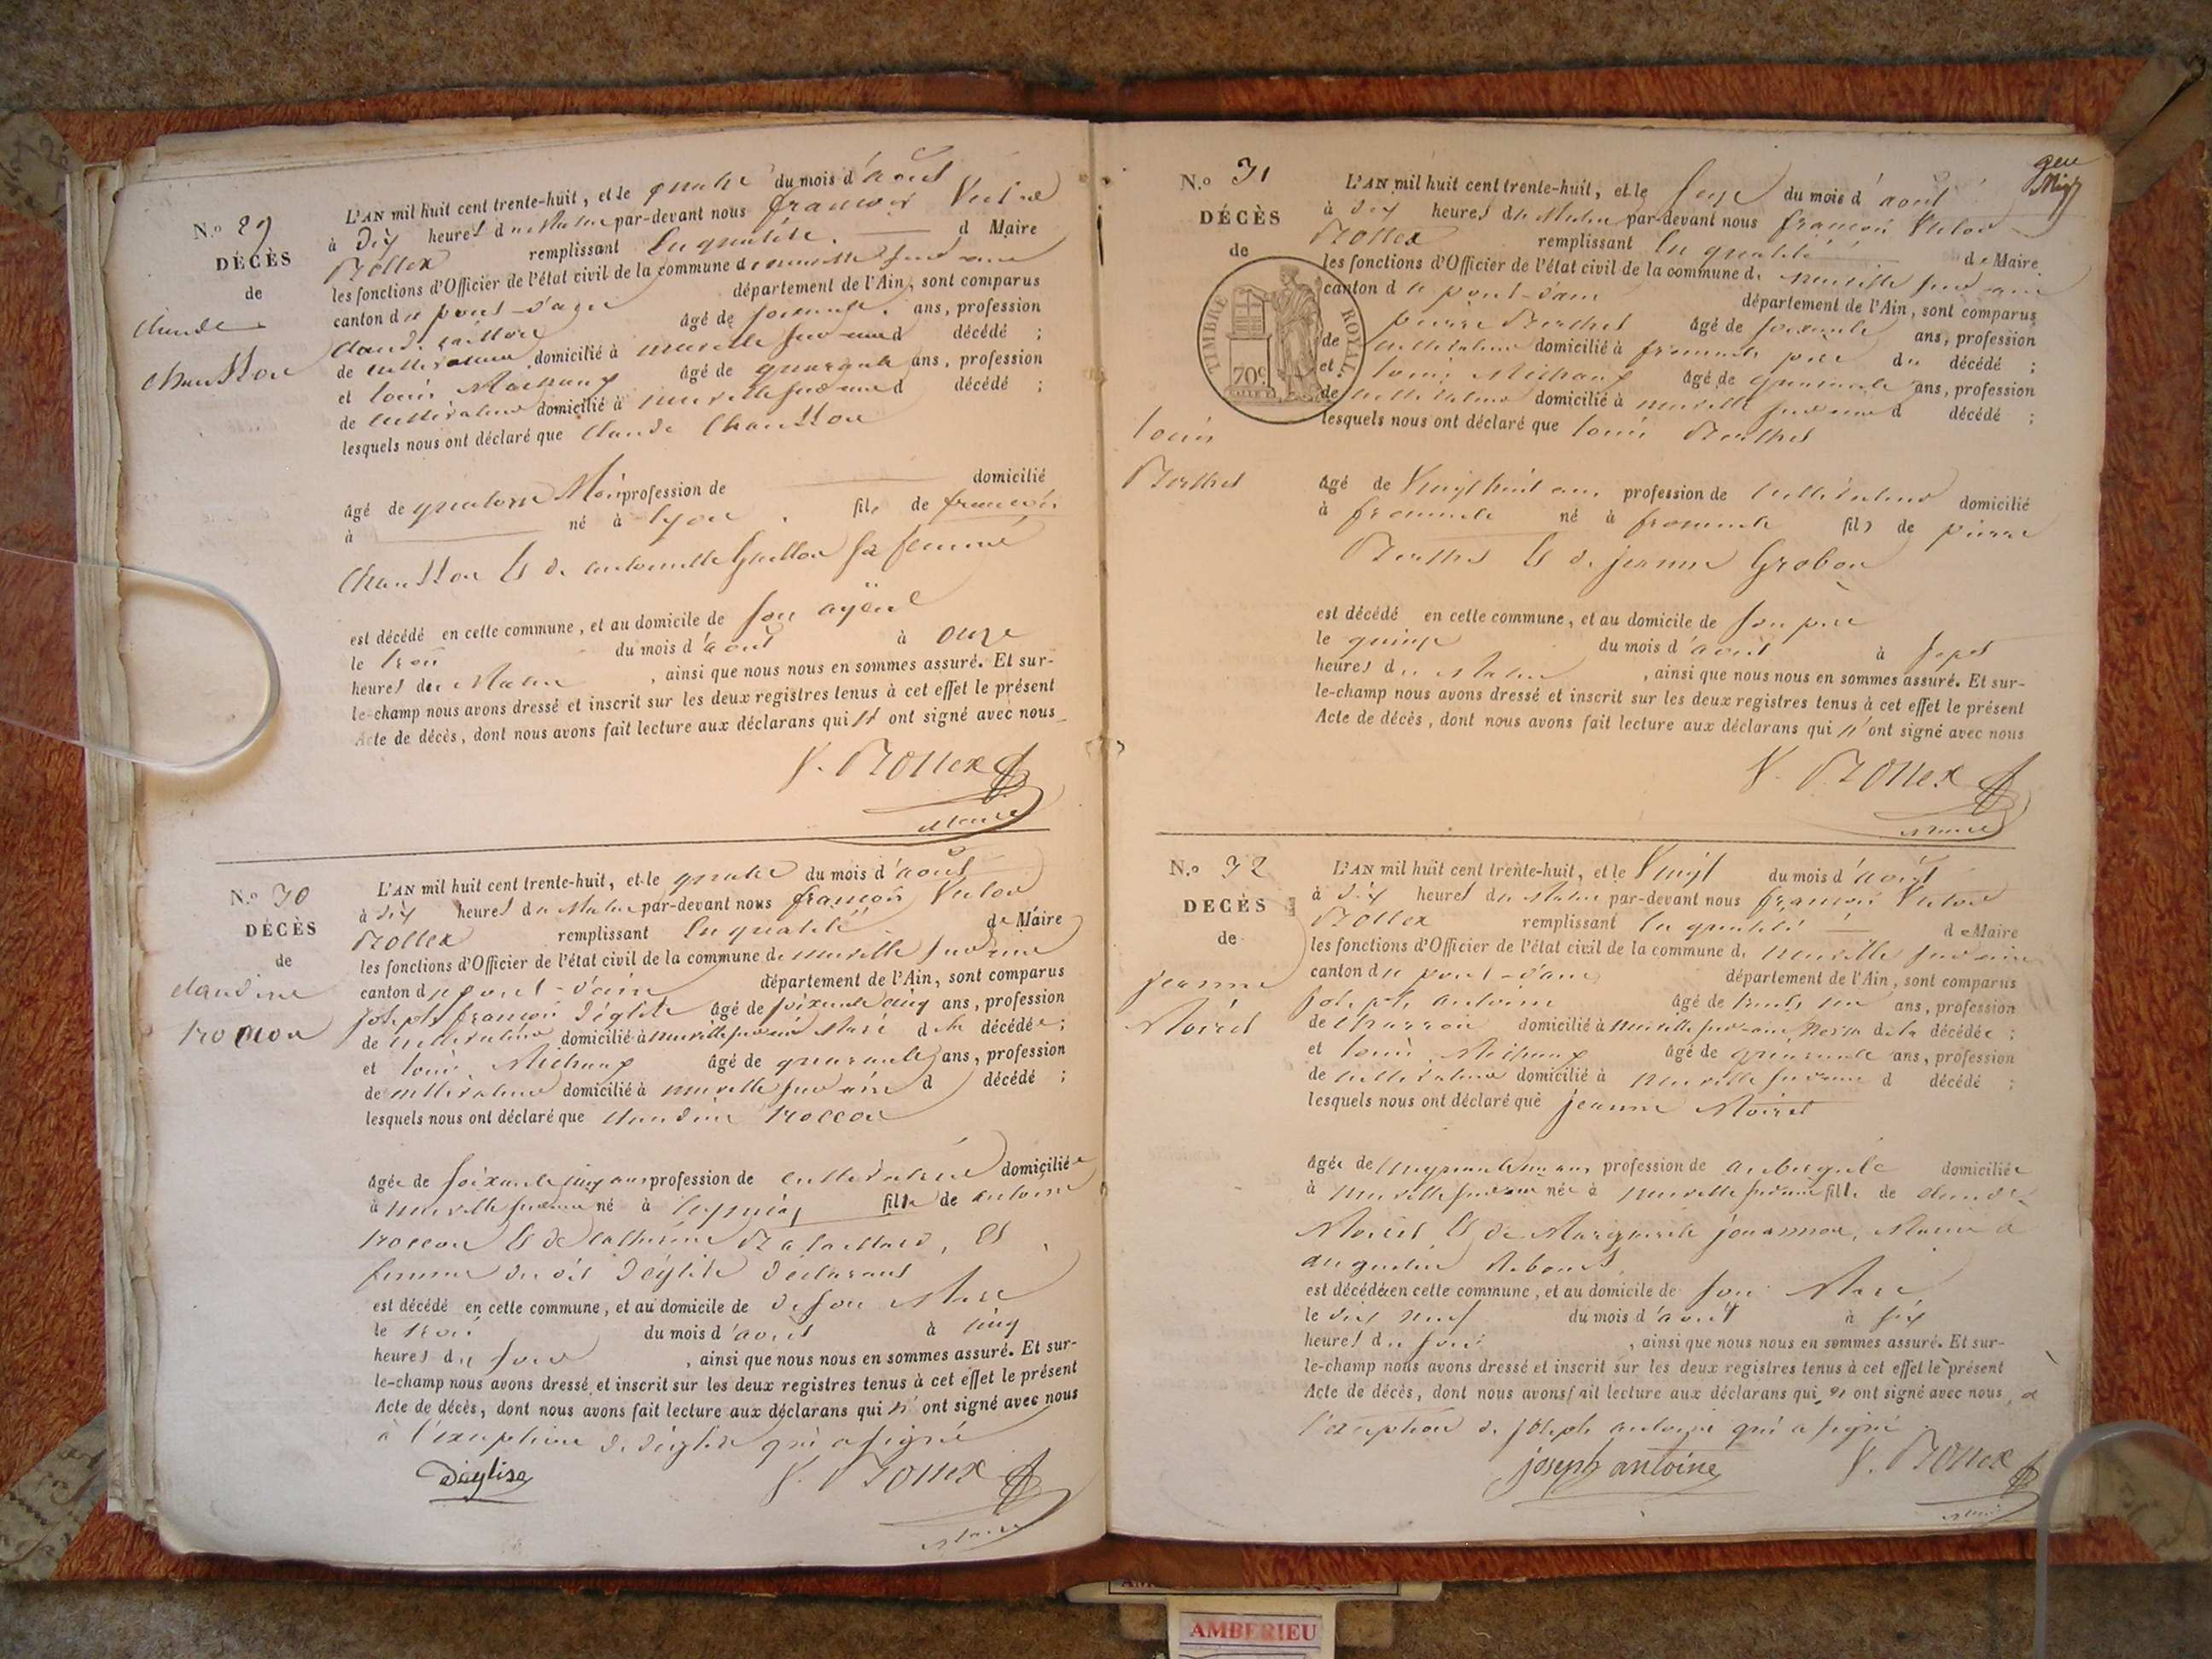 N.° 29
DÉCÈS
de
claude
chausson
L'AN mil huit cent trente-huit, et le quatre du mois d'août
à dix heures du matin par-devant nous françois Victor
Rollex remplissant en qualité de Maire
les fonctions d'Officier de l'état civil de la commune de neuville sur ain
canton de pont-d'ain département de l'Ain, sont comparus
claude âgé de soixante ans, profession
de cultivateur domicilié à neuville sur ain d décédé ;
et louis Michaux âgé de quarante ans, profession
de cultivateur domicilié à neuville sur ain d décédé ;
lesquels nous ont déclaré que claude chausson
âgé de quatorze Mois profession de domicilié
à né à lyon fils de françois
chausson et de antoinette Guillon sa femme
est décédé en cette commune, et au domicile de son ayeul
le trois du mois d'août à onze
heures du Matin, ainsi que nous nous en sommes assuré. Et sur-
le-champ nous avons dressé et inscrit sur les deux registres tenus à cet effet le présent
Acte de décès, dont nous avons fait lecture aux déclarans qui n'ont signé avec nous
V. Rollex
Maire
N.° 30
DÉCÈS
de
claudine
troccon
L'AN mil huit cent trente-huit, et le quatre du mois d'août
à dix heures du Matin par-devant nous françois Victor
Rollex remplissant en qualité de Maire
les fonctions d'Officier de l'état civil de la commune de neuville sur ain
canton de pont-d'ain département de l'Ain, sont comparus
joseph françois Déglise âgé de soixante cinq ans, profession
de cultivateur domicilié à neuville sur ain Mari de la décédée ;
et louis Michaux âgé de quarante ans, profession
de cultivateur domicilié à neuville sur ain d décédé ;
lesquels nous ont déclaré que claudine troccon
âgée de soixante cinq ans profession de cultivatrice domiciliée
à neuville sur ain né à fille de antoine
troccon et de catherine et
femme du dit Déglise déclarant
est décédé en cette commune, et au domicile de de son Mari
le trois du mois d'août à cinq
heures du soir, ainsi que nous nous en sommes assuré. Et sur-
le-champ nous avons dressé et inscrit sur les deux registres tenus à cet effet le présent
Acte de décès, dont nous avons fait lecture aux déclarans qui n'ont signé avec nous
à l'exception de déglise qui a signé
Déglise V. Rollex
Maire
N.° 31
DÉCÈS
de
TIMBRE ROYAL
70c
louis
Berthet
L'AN mil huit cent trente-huit, et le seize du mois d'août
à dix heures du Matin par-devant nous françois Victor
Rollex remplissant en qualité de Maire
les fonctions d'Officier de l'état civil de la commune de neuville sur ain
canton de pont-d'ain département de l'Ain, sont comparus
pierre Berthet âgé de soixante ans, profession
de cultivateur domicilié à fromente père du décédé ;
et louis Michaux âgé de quarante ans, profession
de cultivateur domicilié à neuville sur ain d décédé ;
lesquels nous ont déclaré que louis Berthet
âgé de Vingt huit ans profession de cultivateur domicilié
à fromente né à fromente fils de pierre
Berthet et de jeanne Grobon
est décédé en cette commune, et au domicile de son père
le quinze du mois d'août à sept
heures du Matin, ainsi que nous nous en sommes assuré. Et sur-
le-champ nous avons dressé et inscrit sur les deux registres tenus à cet effet le présent
Acte de décès, dont nous avons fait lecture aux déclarans qui n'ont signé avec nous
V. Rollex
Maire
N.° 32
DÉCÈS
de
jeanne
Moiret
L'AN mil huit cent trente-huit, et le Vingt du mois d'août
à dix heures du Matin par-devant nous françois Victor
Rollex remplissant en qualité de Maire
les fonctions d'Officier de l'état civil de la commune de neuville sur ain
canton de pont-d'ain département de l'Ain, sont comparus
joseph antoine âgé de trente un ans, profession
de charron domicilié à neuville sur ain de la décédée ;
et louis Michaux âgé de quarante ans, profession
de cultivateur domicilié à neuville sur ain d décédé ;
lesquels nous ont déclaré que jeanne Moiret
âgée de ans profession de aubergiste domiciliée
à neuville sur ain née à neuville sur ain fille de claude
Moiret et de Marguerite Mariée à
augustin
est décédée en cette commune, et au domicile de son Mari
le dix neuf du mois d'août à six
heures du soir, ainsi que nous nous en sommes assuré. Et sur-
le-champ nous avons dressé et inscrit sur les deux registres tenus à cet effet le présent
Acte de décès, dont nous avons fait lecture aux déclarans qui n'ont signé avec nous, à
l'exception de joseph antoine qui a signé
joseph antoine V. Rollex
Maire
AMBERIEU